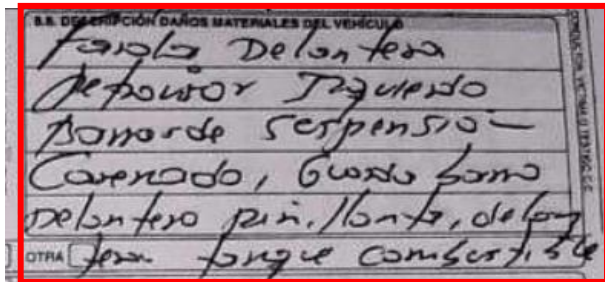 8.8. DESCRIPCIÓN DAÑOS MATERIALES DEL VEHÍCULO
Farola Delantera
Retrovisor Izquierdo
Barra de Suspensio-
Carenado, Guarda barro
Delantero rin, llanta, delan
OTRA tera tanque combustible